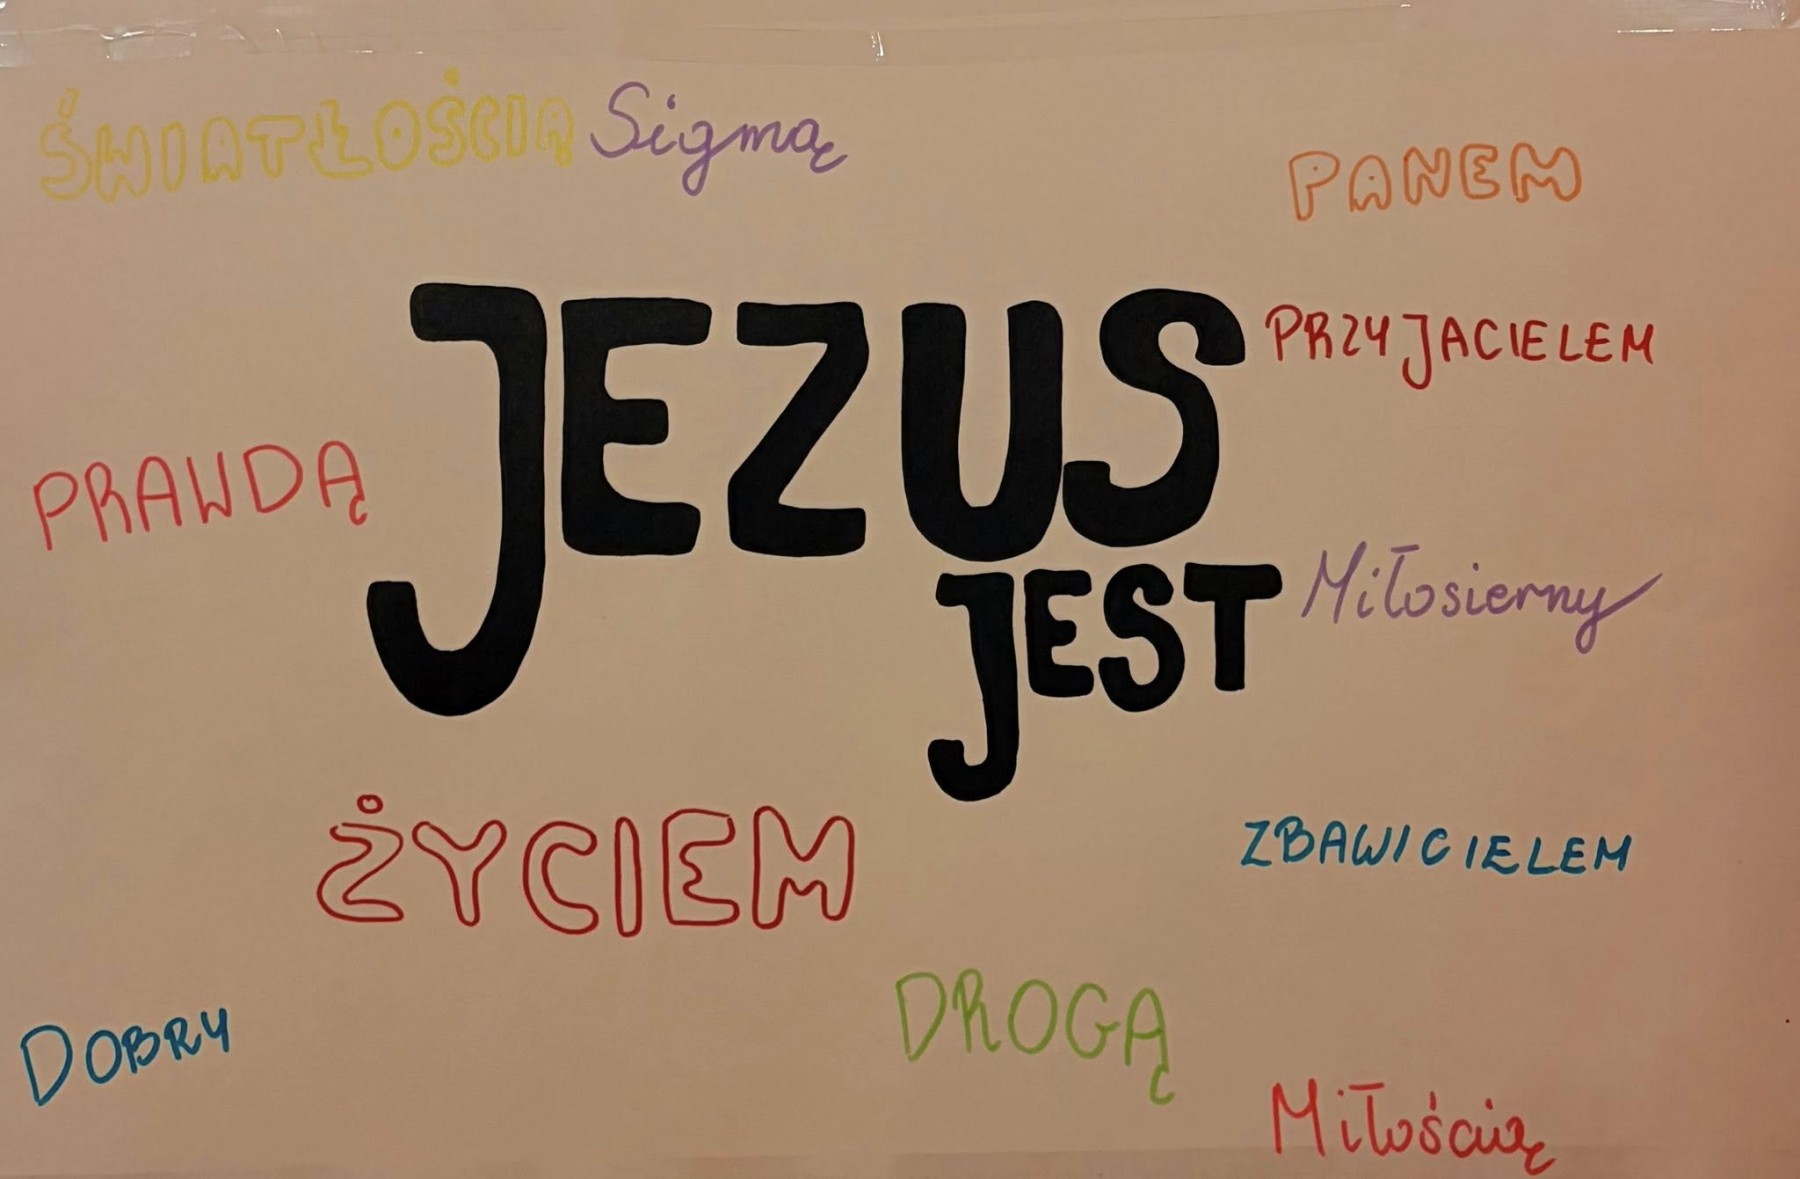 ŚWIATŁOŚCIĄ Sigmą
PANEM
JEZUS
PRZYJACIELEM
PRAWDĄ
JEST
Miłosierny
ŻYCIEM
ZBAWICIELEM
DROGĄ
DOBRY
Miłością